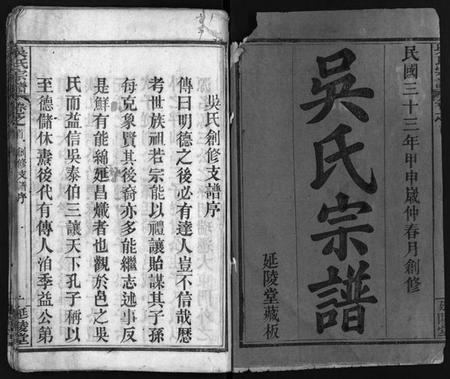 民國三十三年甲申歲仲春月創修
吳氏宗譜
延陵堂藏板
吳氏創修支譜序
傳曰明德之後必有達人豈不信哉歷
考世族祖若宗能以禮讓貽謀其子孫
每克象賢其後裔亦多能繼志述事反
是鮮有能綿延昌熾者也觀於邑之吳
氏而益信吳泰伯三讓天下孔子稱以
至德儲休衍後代有傳人洎季益公弟
吳氏宗譜
創修支譜序
一
延陵堂